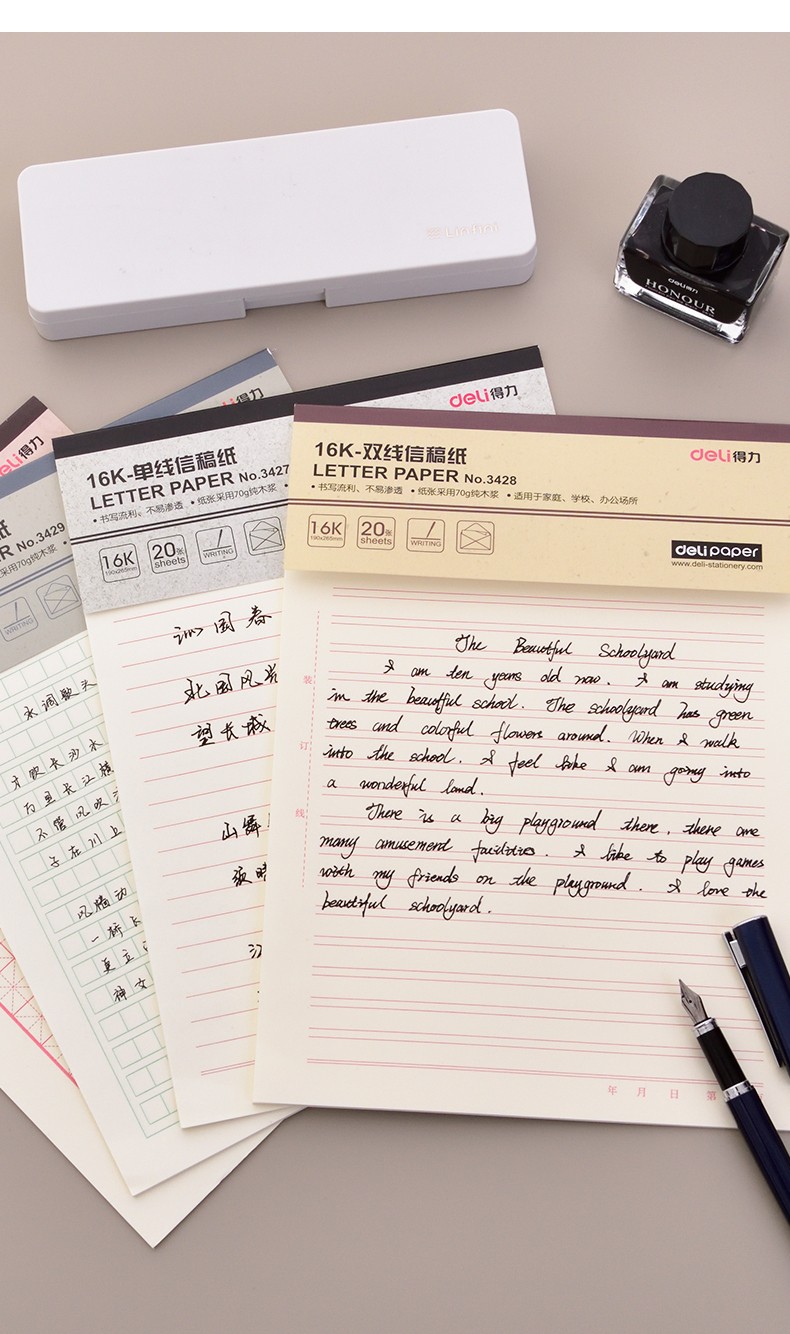 deli得力
deli得力
deli得力
deli得力
delien
HONOUR
No.3429
WRITING
16K-单线信稿纸
LETTER PAPER No.3427
• 书写流利、不易渗透 • 纸张采用70g纯木浆
16K
190x265mm
20张
sheets
WRITING
16K-双线信稿纸
LETTER PAPER No.3428
• 书写流利、不易渗透 • 纸张采用70g纯木浆 • 适用于家庭、学校、办公场所
16K
190x265mm
20张
sheets
WRITING
deli paper
www.deli-stationery.com
The Beautful Schoolyard
I am ten years old now. I am studying
in the beautful school. The schoolyard has green
trees and colorful flowers around. When I walk
into the school. I feel like I am going into
a wonderful land.
There is a big playground there, there are
many amusement facilities. I like to play games
with my friends on the playground. I love the
beautiful schoolyard.
装
订
线
年 月 日 第
沁园春
北国风
望长城
山舞
江
水调歌头
才饮长沙水
万里长江横
不管风吹
子在川上
风樯动
一桥
神女